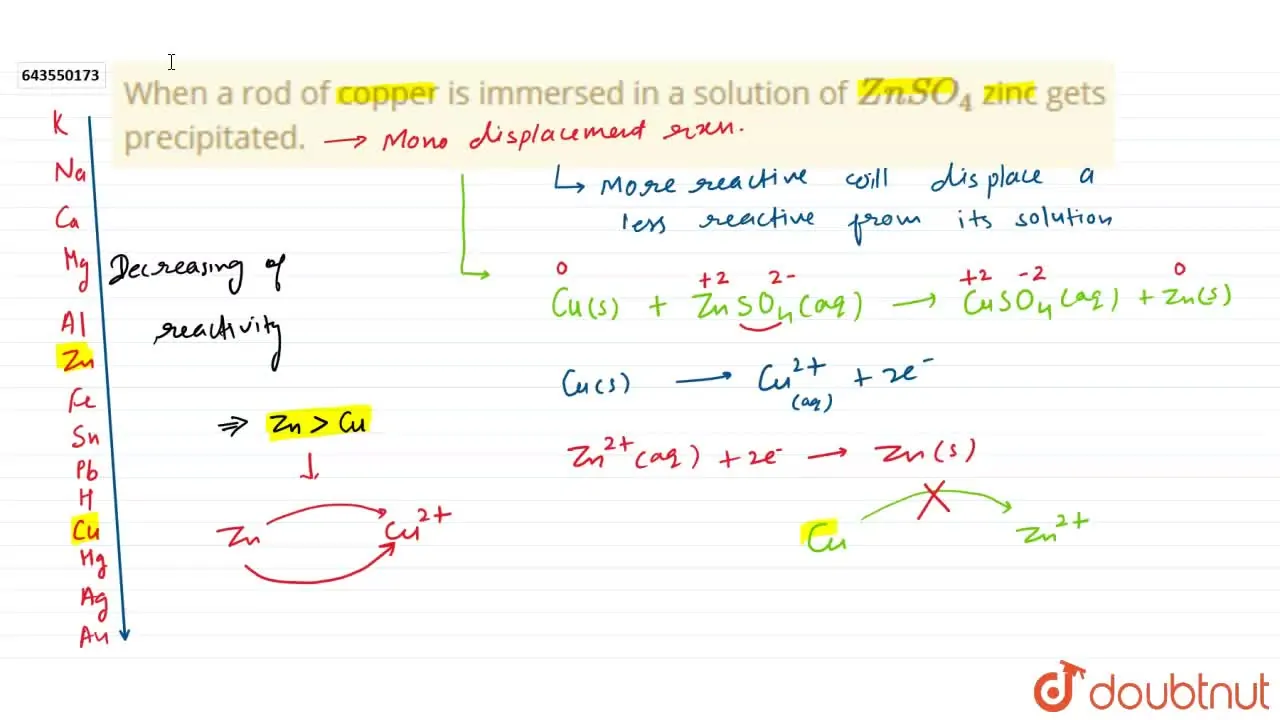 643550173
When a rod of copper is immersed in a solution of ZnSO₄ zinc gets
precipitated. → Mono displacement rxn.
↳ More reactive will displace a
less reactive from its solution
K
Na
Ca
Mg
Al
Zn
Fe
Sn
Pb
H
Cu
Hg
Ag
Au
Decreasing of
reactivity
⇒ Zn > Cu
↓
Zn Cu²⁺
0 +2 2- +2 -2 0
Cu(s) + ZnSO₄(aq) → CuSO₄(aq) + Zn(s)
Cu(s) → Cu²⁺(aq) + 2e⁻
Zn²⁺(aq) + 2e⁻ → Zn(s)
Cu Zn²⁺
doubtnut